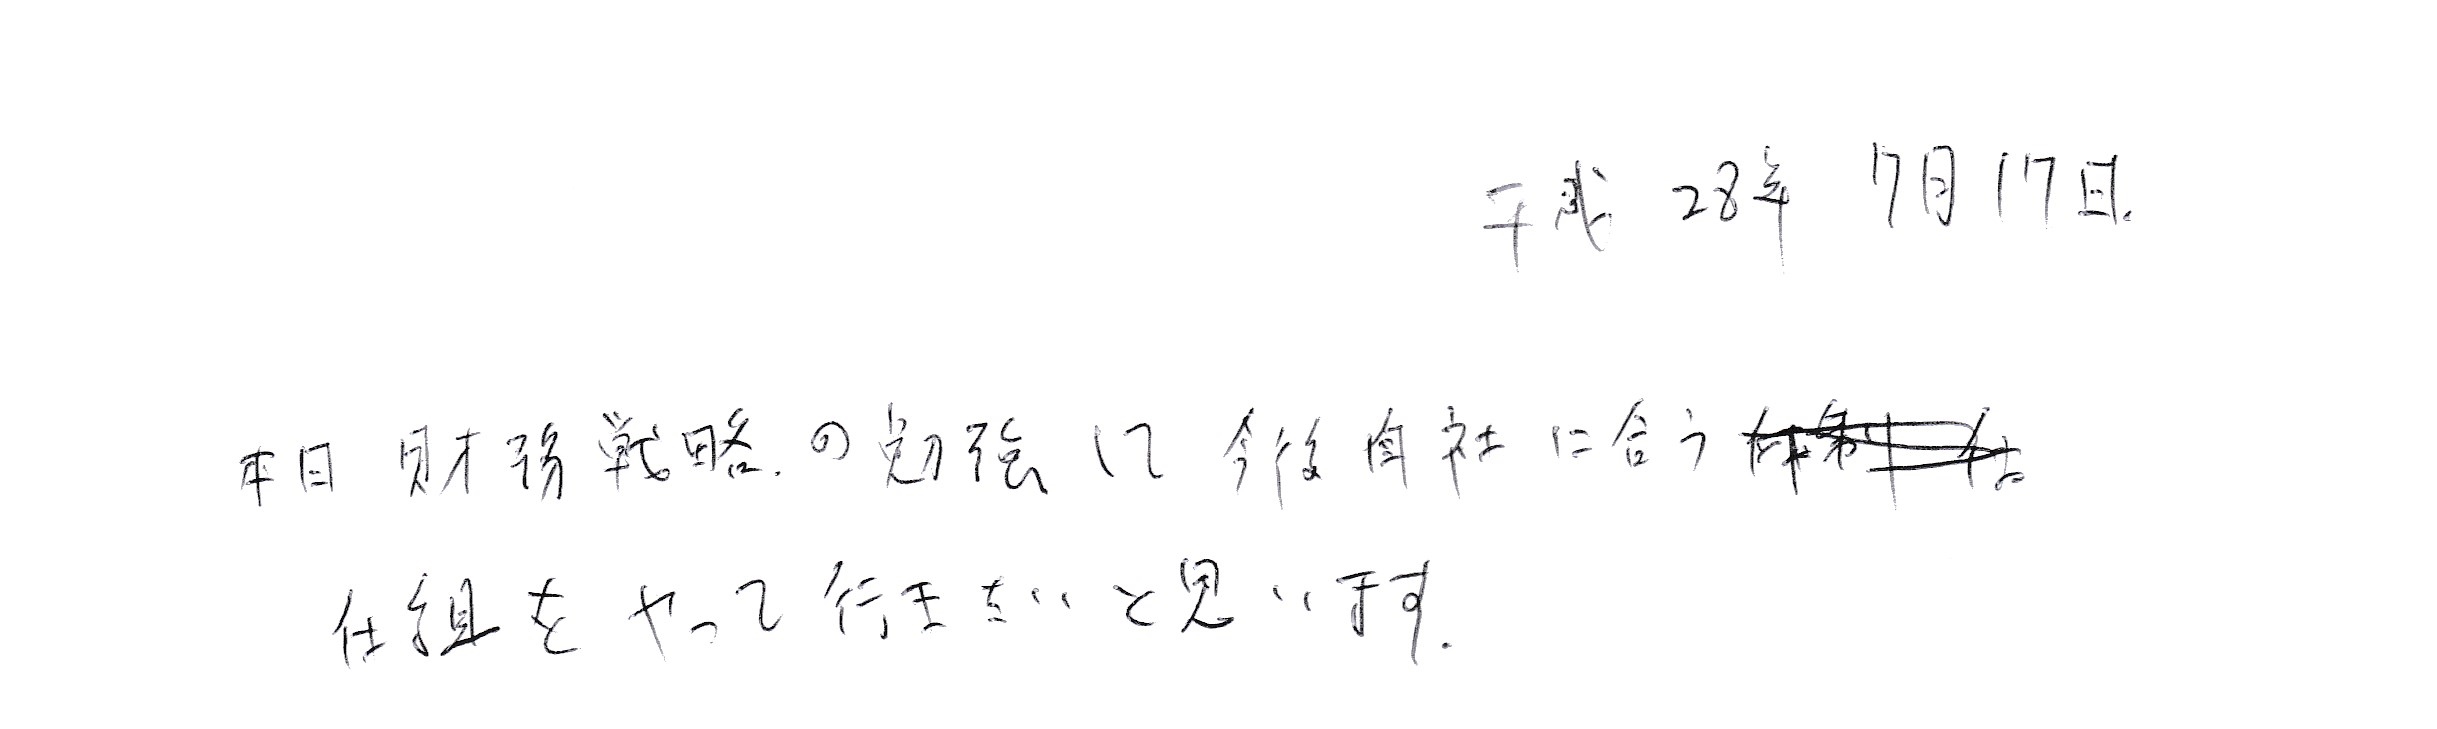 平成 28年 7月17日.
本日 財務戦略.の勉強して 今後自社に合う
仕組をやって行きたいと思います.